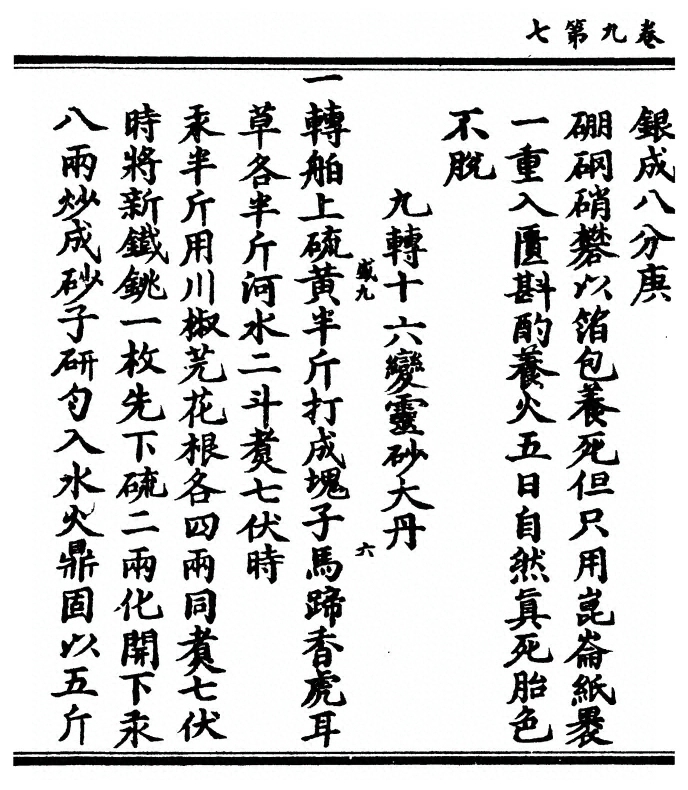 卷九第七
銀成八分庚
硼硇硝礬以箔包養死但只用崑崙紙褁
一重入匱斟酌養火五日自然真死胎色
不脫
九轉十六變靈砂大丹
盛九
六
一轉舶上硫黃半斤打成塊子馬蹄香虎耳
草各半斤河水二斗煑七伏時
汞半斤用川椒芫花根各四兩同煑七伏
時將新鐵銚一枚先下硫二兩化開下汞
八兩炒成砂子研勻入水火鼎固以五斤